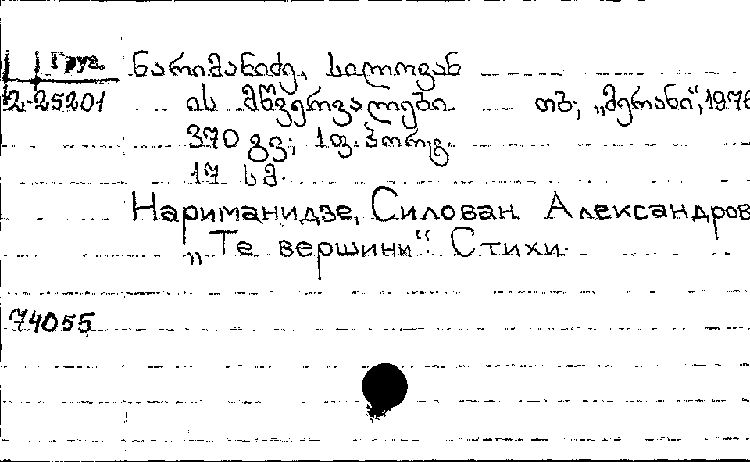 Груз. ნარიმანიძე, სილოვან
2-25201 ის მწვერვალები თბ; „მერანი“, 1976
370 გვ; 1 ფ. პორტ.
17 სმ.
Нариманидзе, Силован Александров
„Те вершини“ Стихи.
74055